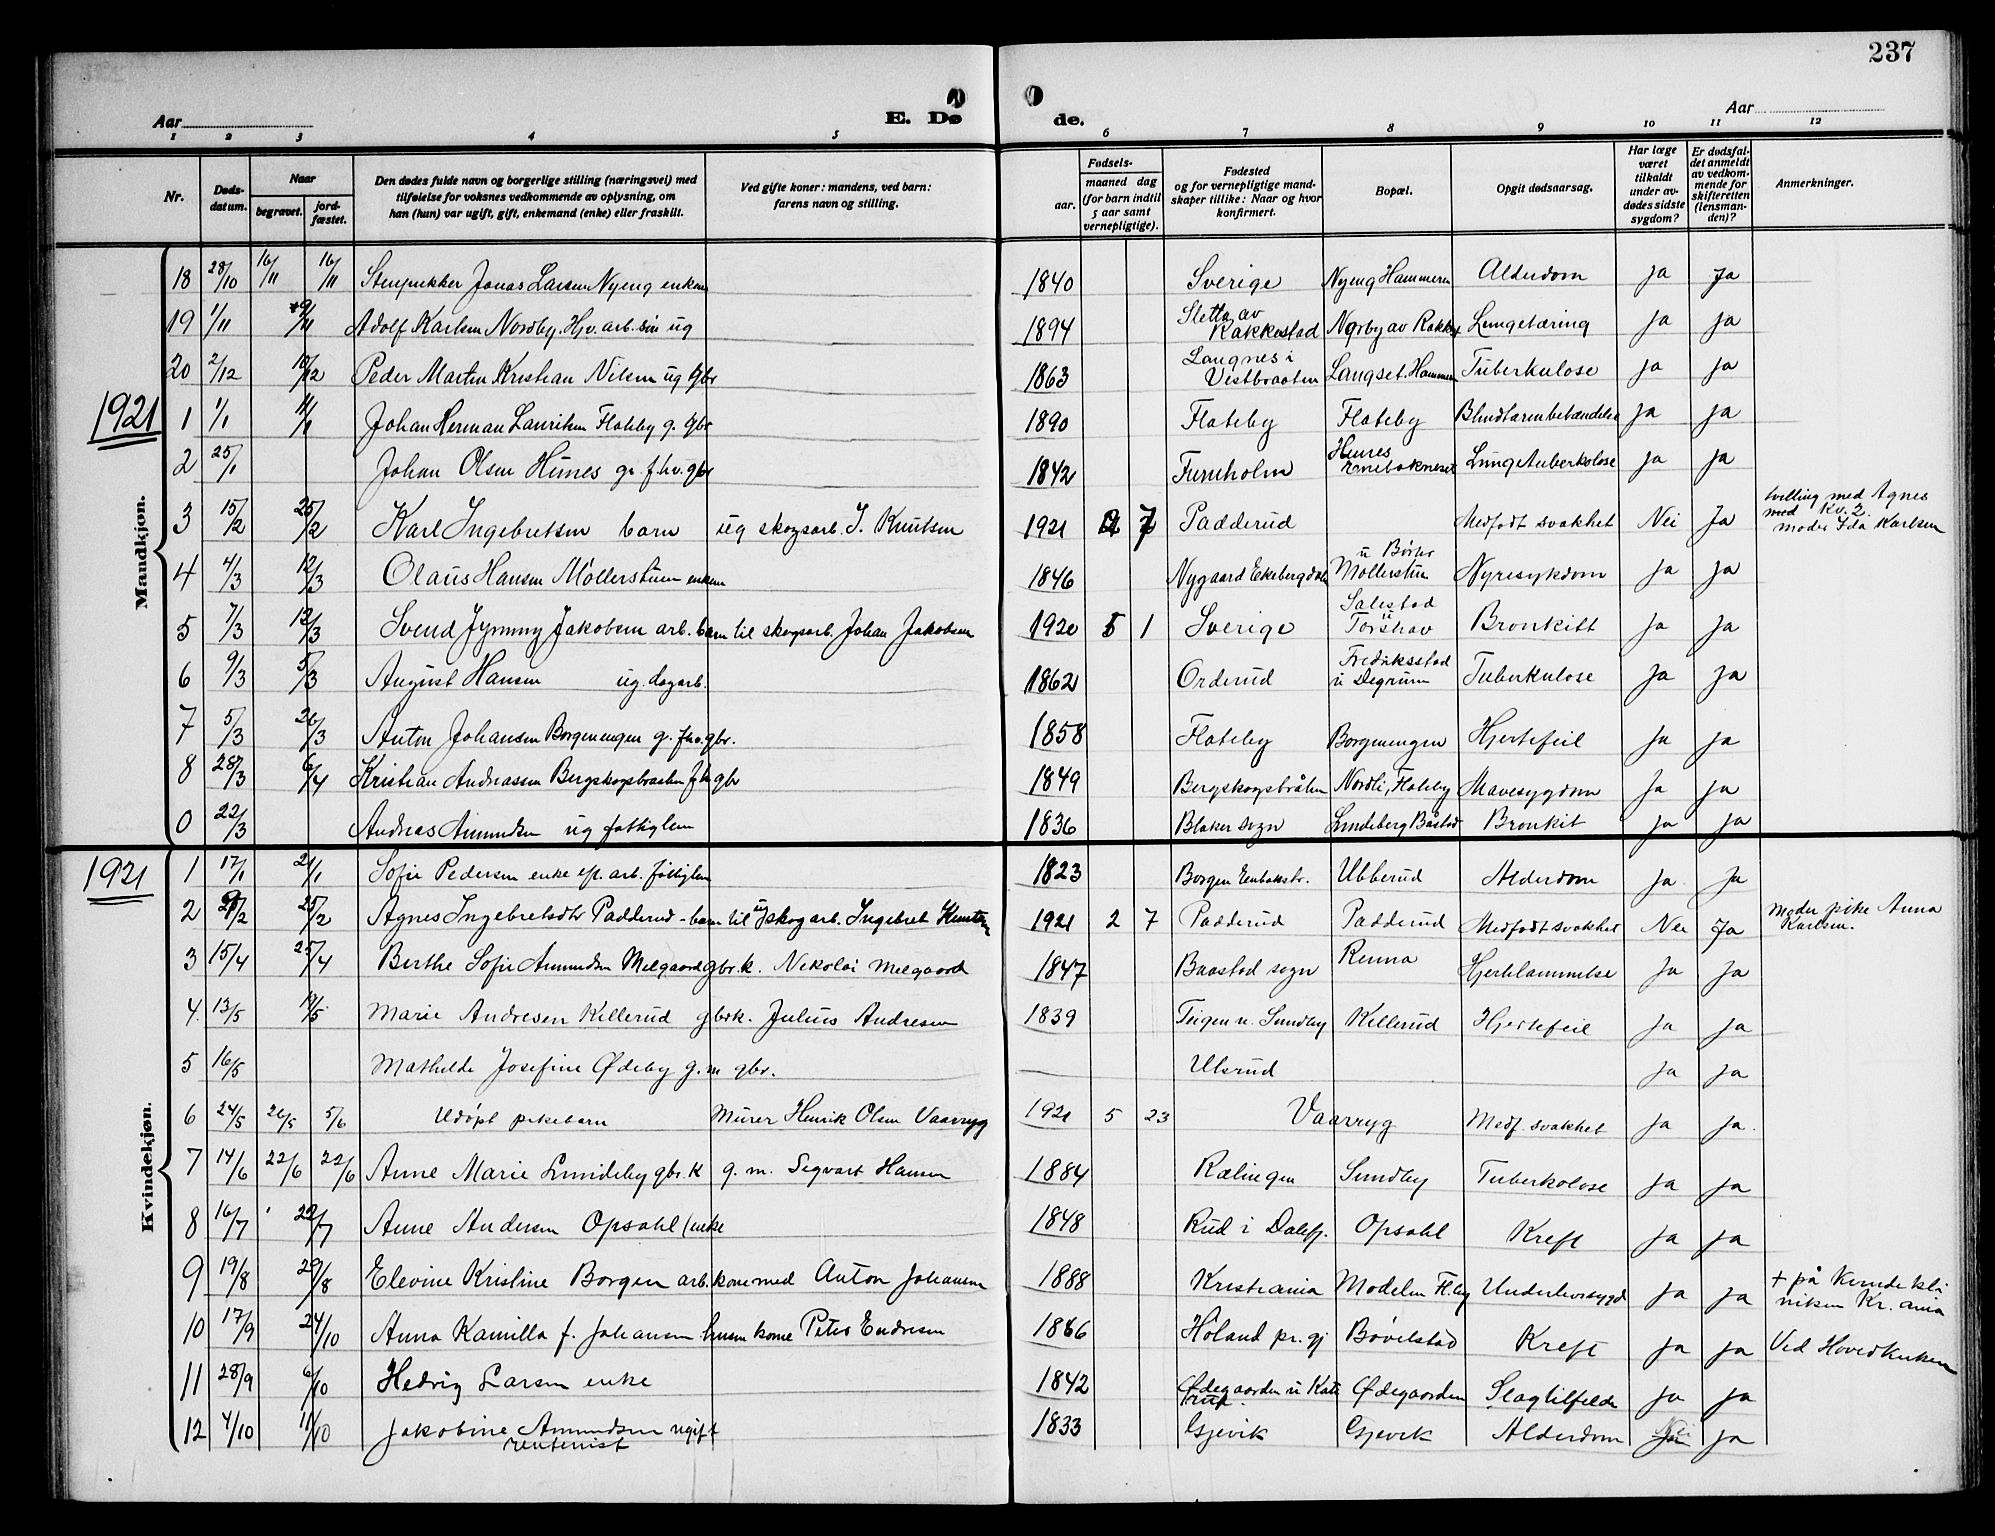 237
Aar
E. Dø de.
Aar
1 2 3 4 5 6 7 8 9 10 11 12
Nr. Døds-datum. Naar begravet. jord-fæstet. Den dødes fulde navn og borgerlige stilling (næringsvei) med tilføielse for voksnes vedkommende av oplysning, om han (hun) var ugift, gift, enkemand (enke) eller fraskilt. Ved gifte koner: mandens, ved barn: farens navn og stilling. Fødsels- aar. maaned dag (for barn indtil 5 aar samt vernepligtige). Fødested og for vernepligtige mand-skaper tillike: Naar og hvor konfirmert. Bopæl. Opgit dødsaarsag. Har læge været tilkaldt under av-dødes sidste sygdom? Er dødsfal-det anmeldt av vedkom-mende for skifteretten (lensman-den)? Anmerkninger.
Mandkjøn.
18 28/10 16/11 16/11 Stenpukker Jonas Larsen Nyeng enkem 1840 Sverige Nyeng Hammeren Alderdom Ja Ja
19 1/11 9/11 Adolf Karlsen Nordby. Hjv. arb. søn ug 1894 Sletta av Rakkestad Norby av Rakkest Lungetæring Ja Ja
20 2/12 10/12 Peder Martin Kristian Nilsen ug gbr 1863 Langnes i Vestbraaten Langset. Hammeren Tuberkulose Ja Ja
1921
1 1/1 11/1 Johan Herman Lauritsen Flateby g. gbr 1890 Flateby Flateby Blindtarmbetændelse Ja Ja
2 25/1 Johan Olsen Himes gr. f.hv. gbr 1842 Furuholm Himes Enebakneset Lungetuberkolose Ja Ja
3 15/2 25/2 Karl Ingebretsen barn ug skogsarb. I. Knutsen 1921 2 7 Padderud Medfødt svakhet Nei Ja tvilling med Agnes med Kv. 2. moder Ida Karlsen
4 4/3 12/3 Olaus Hansen Møllerstuen enkem 1846 Nygaard Ekebergdalen u Børter Møllerstuen Nyresykdom Ja Ja
5 7/3 12/3 Svend Jymmy Jakobsen arb. barn til skogsarb. Johan Jakobsen 1920 5 1 Sverige Salestad u Torshav Bronkitt Ja Ja
6 9/3 5/3 August Hansen ug. dagarb. 1862 Orderud Fredriksstad u Degrum Tuberkulose Ja Ja
7 5/3 26/3 Anton Johansen Borgenengen g. fhv. gbr. 1858 Flateby Borgenengen Hjertefeil Ja Ja
8 28/3 6/4 Kristian Andreassen Bergskogsbraaten f.hv gbr 1849 Bergskogsbråten Nordli, Flateby Mavesygdom Ja Ja
0 22/3 Andreas Amundsen ug fattiglem 1836 Blaker sogn Lundeberg Båstad Bronkit Ja Ja
1921
Kvindekjøn.
1 17/1 21/1 Sofie Pedersen enke eft. arb. fattiglem 1823 Borgen Enebakstr. Ubberud Alderdom Ja Ja
2 /2 25/2 Agnes Ingebretsdtr Padderud - barn til ug skogarb. Ingebret Knutsen 1921 2 7 Padderud Padderud Medfødt svakhet Nei Ja Moder pike Anna Karlsen.
3 15/4 25/4 Berthe Sofie Amundsen Melgaard gbr.k. Nekolai Melgaard 1847 Baastad sogn Renna Hjertelammelse Ja Ja
4. 13/5 19/5 Marie Andresen Killerud gbrk. Julius Andresen 1839 Teigen u. Sundby Killerud Hjertefeil Ja Ja
5 16/5 Mathilde Josefine Ødeby g. m gbr. Ulsrud Ja Ja
6 24/5 26/5 5/6 Udøpt pikebarn Murer Henrik Olsen Vaarryg 1921 5 23 Vaarryg Medf. svakhet Ja Ja.
7 14/6 22/6 22/6 Anne Marie Lundeby gbr. k g. m. Segvart Hansen 1884 Rælingen Sundby Tuberkolose Ja Ja
8 16/7 22/7 Anne Andersen Opsahl (enke 1848 Rud i Dalefj. Opsahl Kreft Ja Ja
9 19/8 29/8 Elevine Kristine Borgen arb. kone med Anton Johansen 1888 Kristiania Modelen Fl.by Underlivssygd Ja Ja + på Kvindekliniken Kr.ania
10 17/9 24/10 Anna Kamilla f. Johansen husm kone Peter Endresen 1866 Høland pr.gj Bøvelstad Kreft Ja Ja Ved Hovedkirken
11 28/9 6/10 Hedvig Larsen enke 1842 Ødegaarden u Katterud Ødegaarden Slagtilfelde Ja Ja
12 4/10 11/10 Jakobine Amundsen ugift rentenist 1833 Gjøvik Gjøvik Alderdom Nei Ja Ja